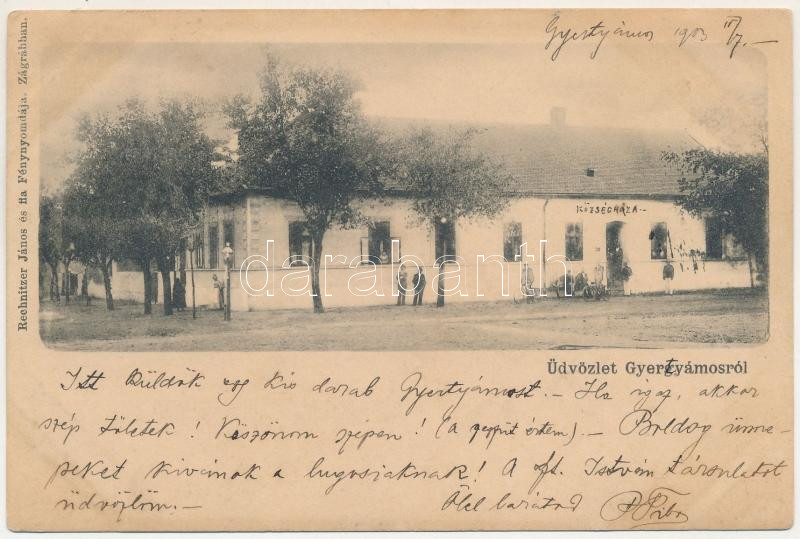 Gyertyámos 1903
Rechnitzer János és fia Fénynyomdája, Zágrábban.
KÖZSÉGHÁZA
darabanth
Üdvözlet Gyertyámosról
Itt küldök egy kis darab Gyertyámost. - Ha igaz, akkor
szép Tőletek! Köszönöm szépen! (a értem). - Boldog ünne-
peket kívánok a lugosiaknak! A István társulatot
üdvözlöm. - Ölel barátod